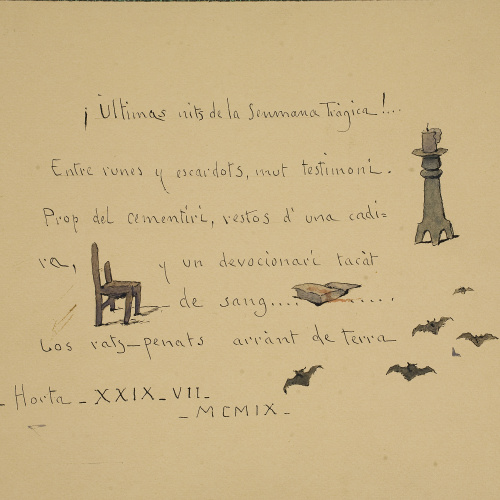 ¡Ultimas nits de la Senmana Tràgica!...
Entre runes y escardots, mut testimoni.
Prop del cementiri, restos d' una cadi=
ra, y un devocionari tacàt
de sang.... ....
Los rats-penats arrànt de terra
_ Horta _ XXIX _ VII _
_ MCMIX _